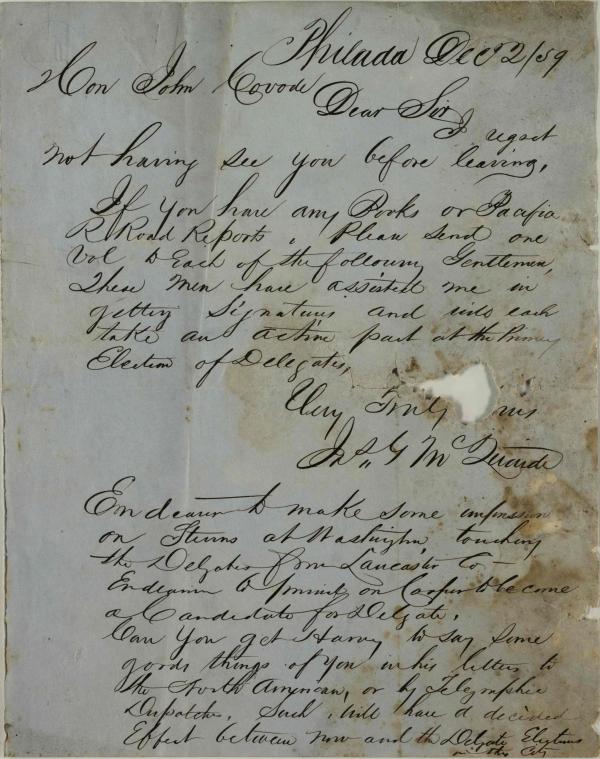 Philada Dec 2/59
Hon John Covode
Dear Sir
I regret
not having see you before leaving,
If you have any Books or Pacific
R Road Reports, Please send one
Vol to Each of the following Gentlemen,
These men have assisted me in
getting Signatures and will each
take an active part at the Primary
Election of Delegates,
Very Truly
Jas, G Mc
Endeavor to make some impression
on Stevens at Washington touching
the Delgates from Lancaster Co—
Endeavor to on Casper to become
a Candidate for Delgate.
Can you get Harvey to say some
good things of you in his letters to
the North American, or by Telegraphic
Dispatches, Such will have a decided
Effect between now and the Delgate Elections
in this City